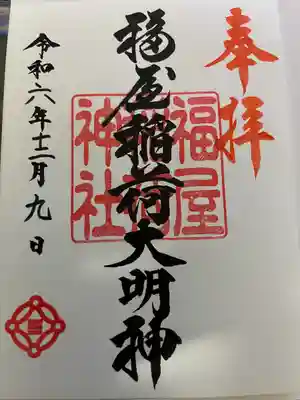 奉拝
福屋稲荷大明神
福屋
神社
令和六年十二月九日